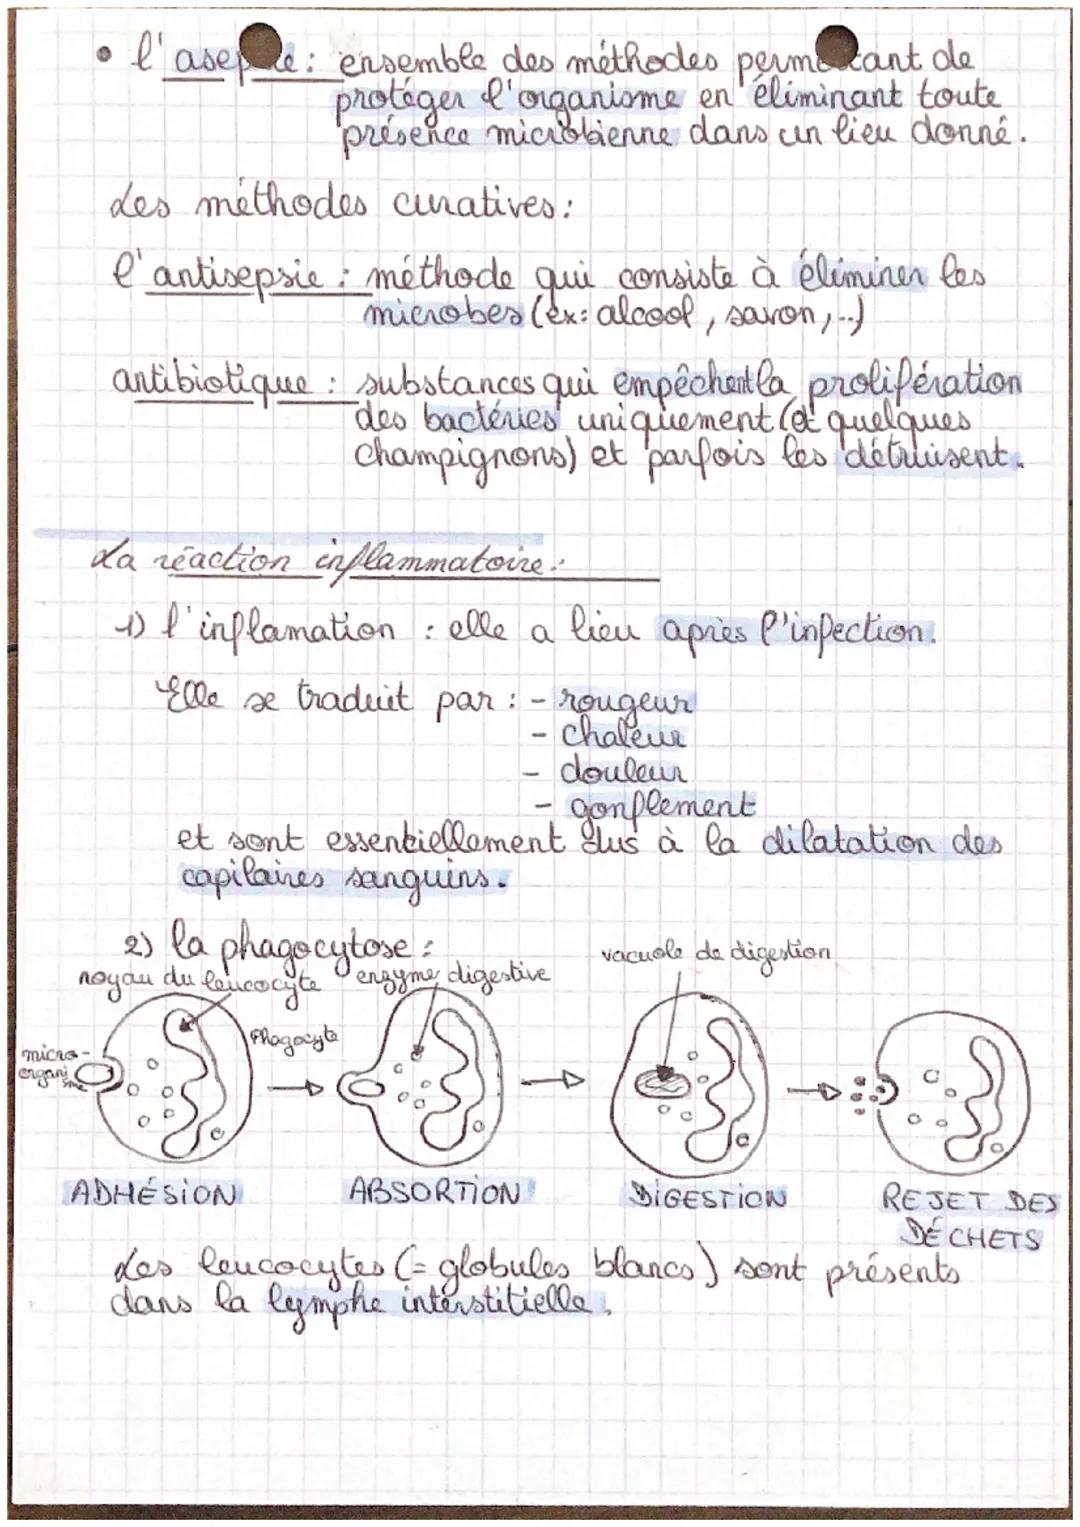 • l'asepsie : ensemble des méthodes permettant de
protéger l'organisme en éliminant toute
présence microbienne dans un lieu donné.
Les méthodes curatives :
l'antisepsie : méthode qui consiste à éliminer les
microbes (ex: alcool, savon,..)
antibiotique : substances qui empêchent la prolifération
des bactéries uniquement (et quelques
champignons) et parfois les détruisent.
La réaction inflammatoire :
1) l'inflamation : elle a lieu après l'infection.
Elle se traduit par : - rougeur
- chaleur
- douleur
- gonflement
et sont essentiellement dus à la dilatation des
capilaires sanguins.
2) la phagocytose :
vacuole de digestion
noyau du leucocyte
enzyme digestive
Phagocyte
micro-
organi
sme
ADHÉSION
ABSORTION
DIGESTION
REJET DES
DÉCHETS
Les leucocytes (= globules blancs) sont présents
dans la lymphe interstitielle.